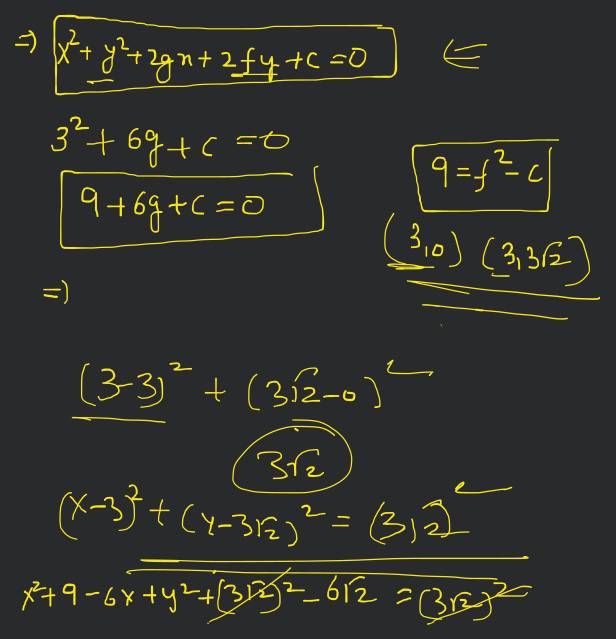 ⇒ x²+ y²+2gx+ 2fy +c =0 ⇐
3²+ 6g+c =0
9+6g+c=0
9=f²-c
(3,0) (3,3√2)
⇒
(3-3)² + (3√2-0)²
3√2
(x-3)²+(y-3√2)² = (3√2)²
x²+9-6x+y²+(3√2)²-6√2 =(3√2)²